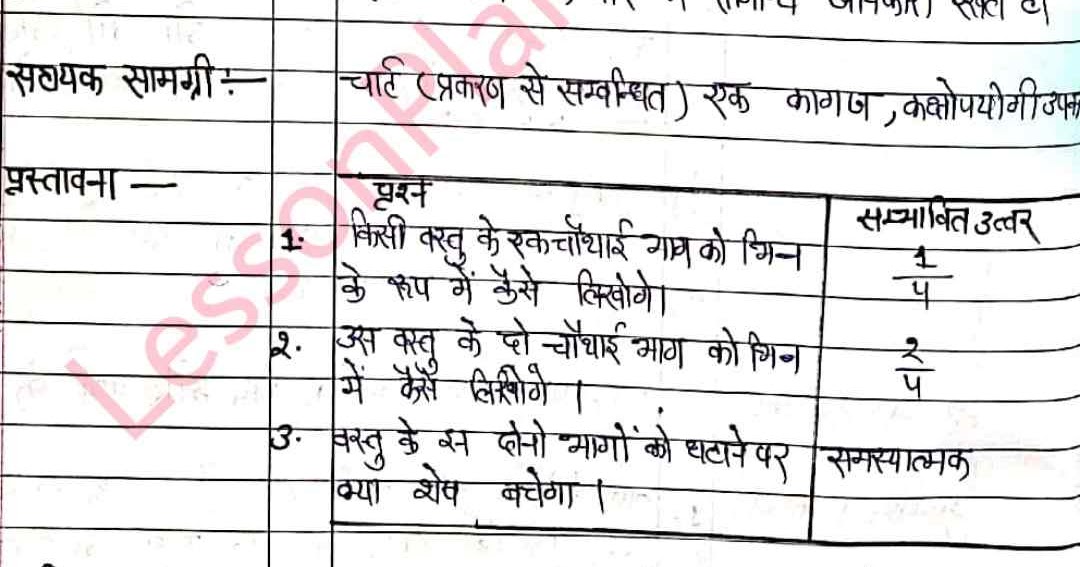 सामान्य जानकारी
सहायक सामग्री :— चार्ट (प्रकरण से सम्बन्धित) एक कागज, कक्षोपयोगी उपक
प्रस्तावना —
प्रश्न
सम्भावित उत्तर
1. किसी वस्तु के एक चौथाई भाग को भिन्न
के रूप में कैसे लिखोगे।
1/4
2. उस वस्तु के दो चौथाई भाग को भिन्न
में कैसे लिखोगे ।
2/4
3. वस्तु के इन दोनो भागों को घटाने पर
क्या शेष बचेगा ।
समस्यात्मक
LessonPla